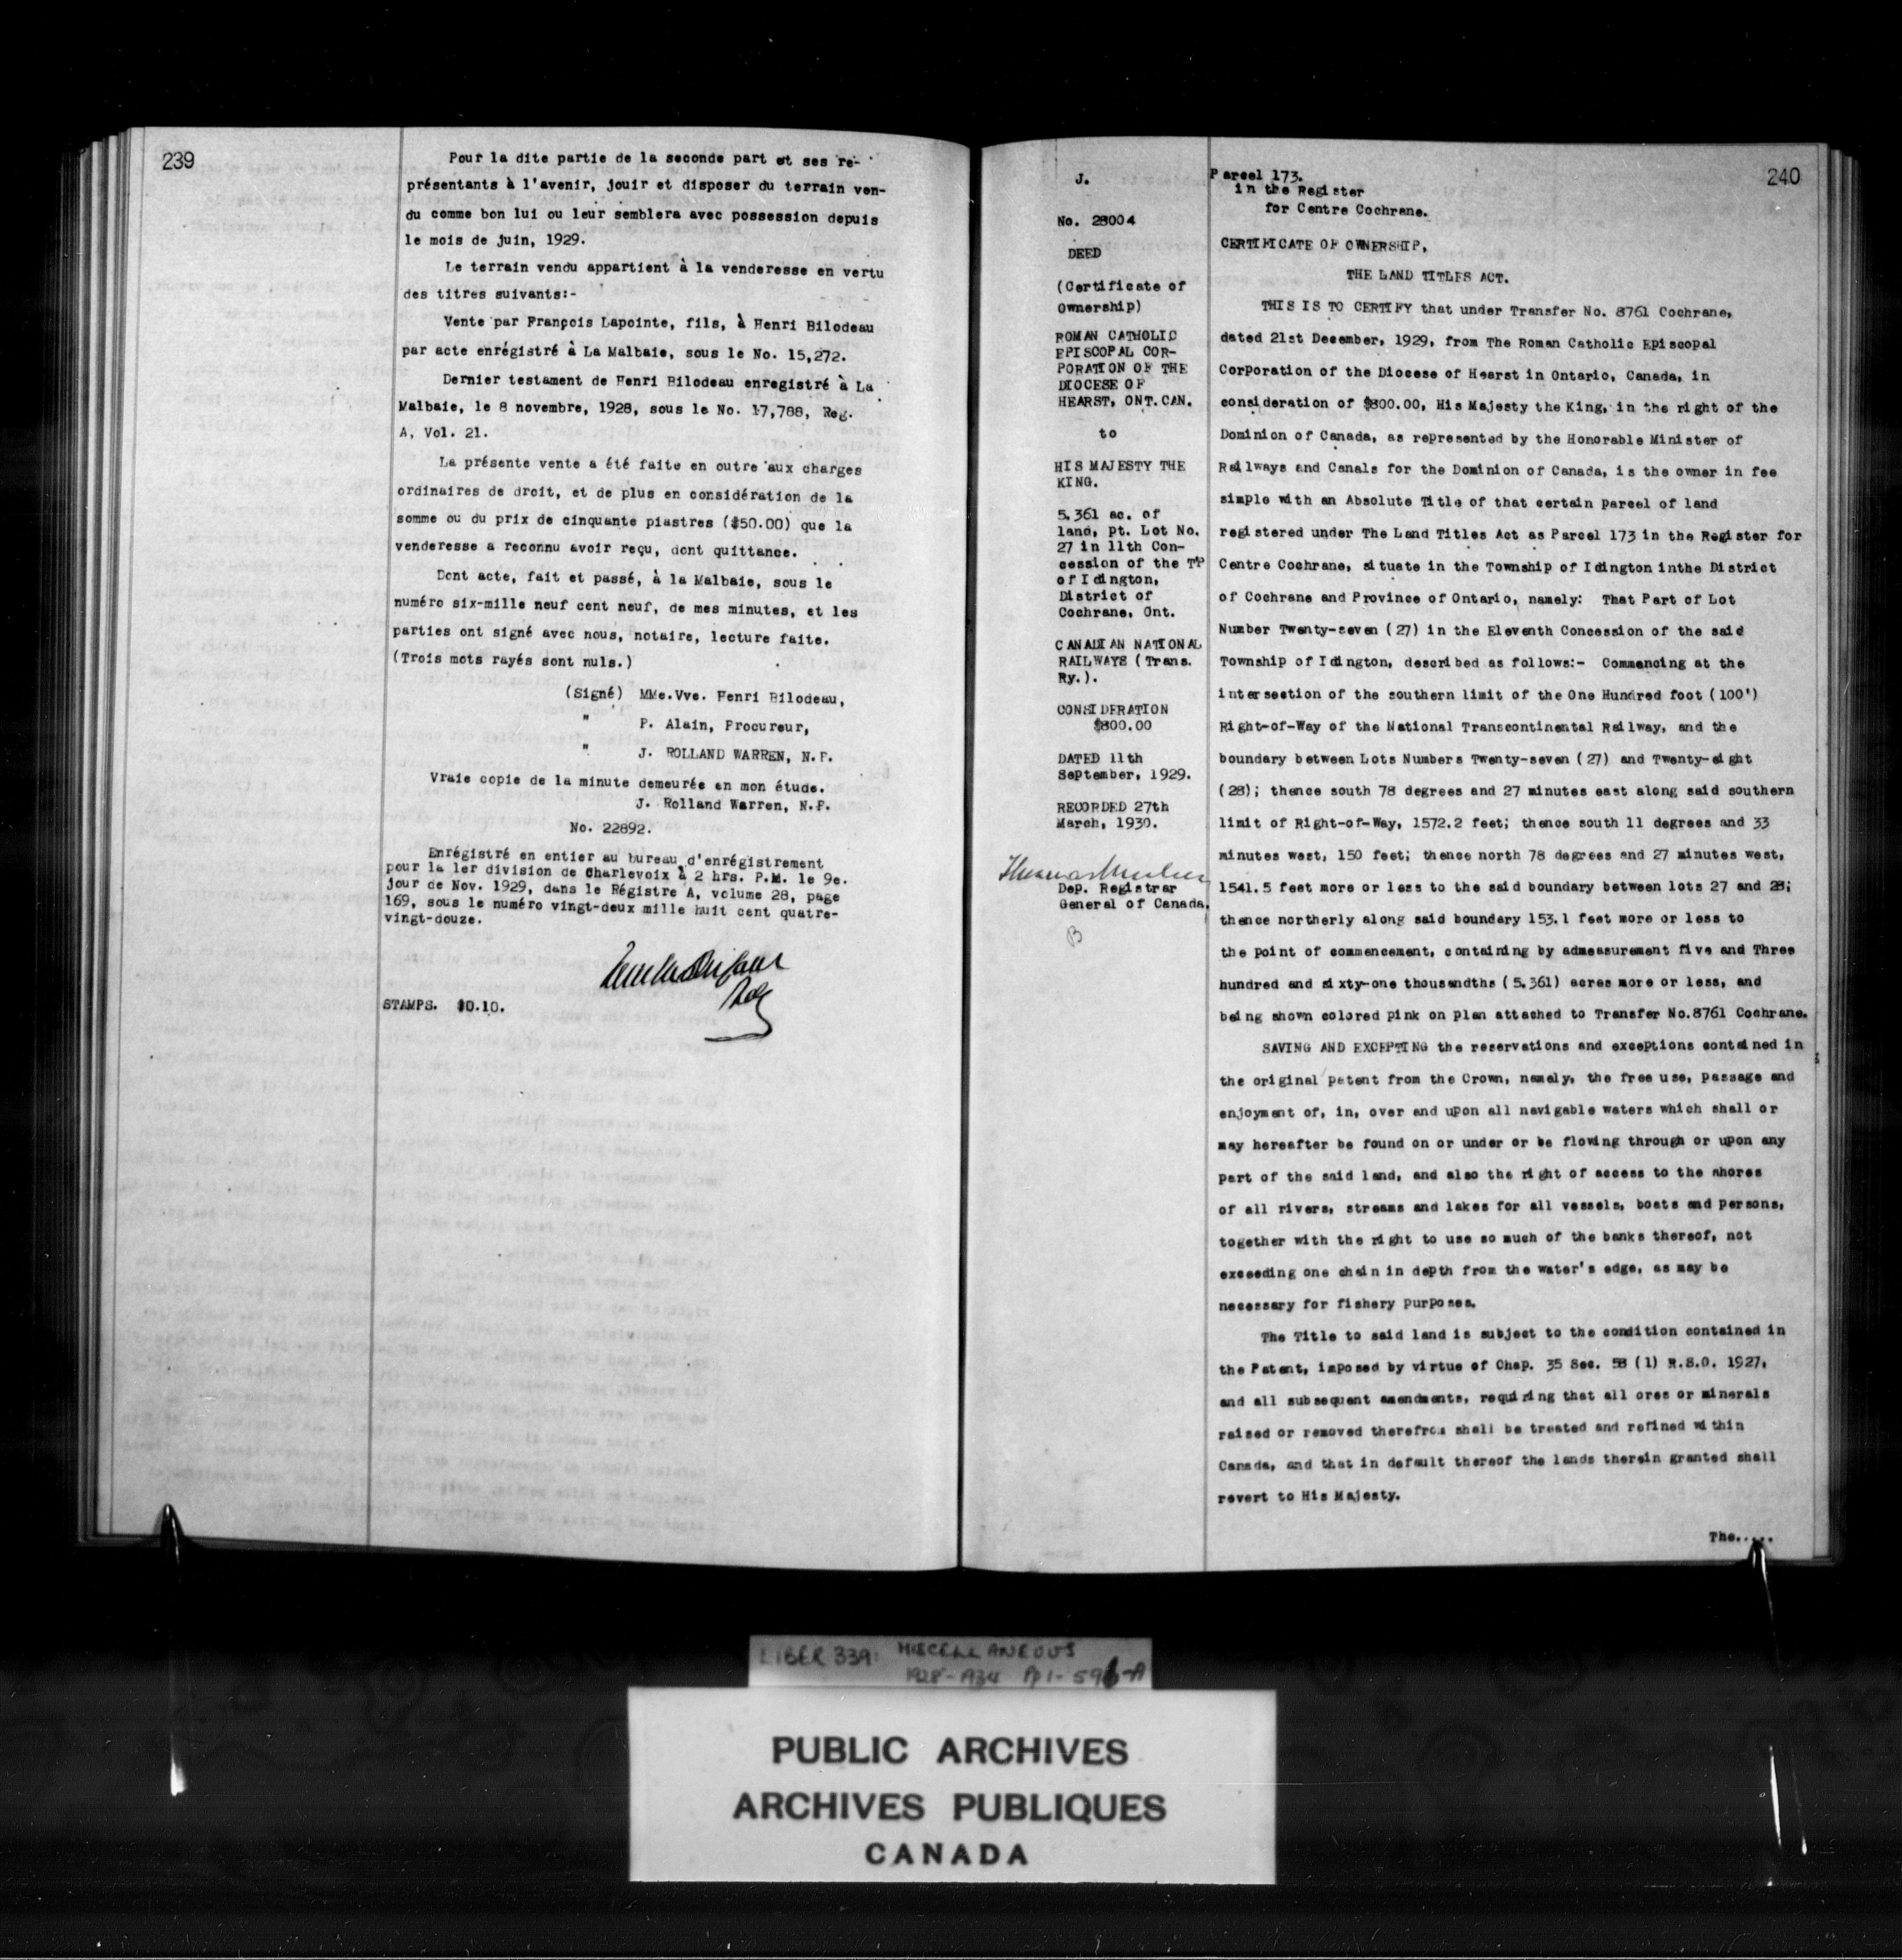 239
Pour la dite partie de la seconde part et ses re-
présentants à l'avenir, jouir et disposer du terrain ven-
du comme bon lui ou leur semblera avec possession depuis
le mois de juin, 1929.
Le terrain vendu appartient à la venderesse en vertu
des titres suivants:-
Vente par François Lapointe, fils, à Henri Bilodeau
par acte enrégistré à La Malbaie, sous le No. 15,272.
Dernier testament de Henri Bilodeau enregistré à La
Malbaie, le 8 novembre, 1928, sous le No. 17,788, Reg.
A, Vol. 21.
La présente vente a été faite en outre aux charges
ordinaires de droit, et de plus en considération de la
somme ou du prix de cinquante piastres ($50.00) que la
venderesse a reconnu avoir reçu, dont quittance.
Dont acte, fait et passé, à la Malbaie, sous le
numéro six-mille neuf cent neuf, de mes minutes, et les
parties ont signé avec nous, notaire, lecture faite.
(Trois mots rayés sont nuls.)
(Signé) MMe.Vve. Henri Bilodeau,
" P. Alain, Procureur,
" J. ROLLAND WARREN, N.P.
Vraie copie de la minute demeurée en mon étude.
J. Rolland Warren, N.P.
No. 22892.
Enrégistré en entier au bureau d'enrégistrement
pour la 1er division de Charlevoix à 2 hrs. P.M. le 9e.
jour de Nov. 1929, dans le Régistre A, volume 28, page
169, sous le numéro vingt-deux mille huit cent quatre-
vingt-douze.
STAMPS. $0.10.
240
J.
No. 28004
DEED
(Certificate of
Ownership)
ROMAN CATHOLIC
EPISCOPAL COR-
PORATION OF THE
DIOCESE OF
HEARST, ONT.CAN.
to
HIS MAJESTY THE
KING.
5.361 ac. of
land, pt. Lot No.
27 in 11th Con-
cession of the Tp
of Idington,
District of
Cochrane, Ont.
CANADIAN NATIONAL
RAILWAYS (Trans.
Ry.).
CONSIDERATION
$800.00
DATED 11th
September, 1929.
RECORDED 27th
March, 1930.
Dep. Registrar
General of Canada.
B
Parcel 173.
in the Register
for Centre Cochrane.
CERTIFICATE OF OWNERSHIP,
THE LAND TITLES ACT.
THIS IS TO CERTIFY that under Transfer No. 8761 Cochrane,
dated 21st December, 1929, from The Roman Catholic Episcopal
Corporation of the Diocese of Hearst in Ontario, Canada, in
consideration of $800.00, His Majesty the King, in the right of the
Dominion of Canada, as represented by the Honorable Minister of
Railways and Canals for the Dominion of Canada, is the owner in fee
simple with an Absolute Title of that certain parcel of land
registered under The Land Titles Act as Parcel 173 in the Register for
Centre Cochrane, situate in the Township of Idington inthe District
of Cochrane and Province of Ontario, namely: That Part of Lot
Number Twenty-seven (27) in the Eleventh Concession of the said
Township of Idington, described as follows:- Commencing at the
intersection of the southern limit of the One Hundred foot (100')
Right-of-Way of the National Transcontinental Railway, and the
boundary between Lots Numbers Twenty-seven (27) and Twenty-eight
(28); thence south 78 degrees and 27 minutes east along said southern
limit of Right-of-Way, 1572.2 feet; thence south 11 degrees and 33
minutes west, 150 feet; thence north 78 degrees and 27 minutes west,
1541.5 feet more or less to the said boundary between lots 27 and 28;
thence northerly along said boundary 153.1 feet more or less to
the point of commencement, containing by admeasurement five and Three
hundred and sixty-one thousandths (5.361) acres more or less, and
being shown colored pink on plan attached to Transfer No.8761 Cochrane.
SAVING AND EXCEPTING the reservations and exceptions contained in
the original patent from the Crown, namely, the free use, passage and
enjoyment of, in, over and upon all navigable waters which shall or
may hereafter be found on or under or be flowing through or upon any
part of the said land, and also the right of access to the shores
of all rivers, streams and lakes for all vessels, boats and persons,
together with the right to use so much of the banks thereof, not
exceeding one chain in depth from the water's edge, as may be
necessary for fishery purposes.
The Title to said land is subject to the condition contained in
the Patent, imposed by virtue of Chap. 35 Sec. 58 (1) R.S.O. 1927,
and all subsequent amendments, requiring that all ores or minerals
raised or removed therefrom shall be treated and refined within
Canada, and that in default thereof the lands therein granted shall
revert to His Majesty.
The.....
LIBER 339: MISCELLANEOUS
1928-1934 Pp1-596-A
PUBLIC ARCHIVES
ARCHIVES PUBLIQUES
CANADA